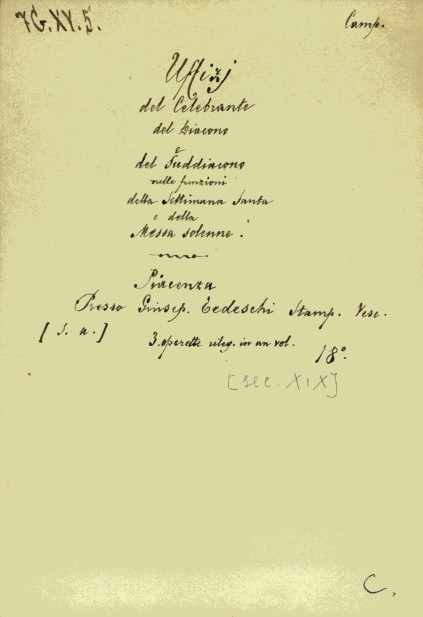 7G.XV.5.
Camp.
Uffizj
del Celebrante
del Diacono
e
del Suddiacono
nelle funzioni
della Settimana Santa
e della
Messa solenne.
Piacenza
Presso Giusep. Tedeschi Stamp. Vesc.
[s. a.]
3. operette rileg. in un vol.
18º.
[sec. XIX]
C.